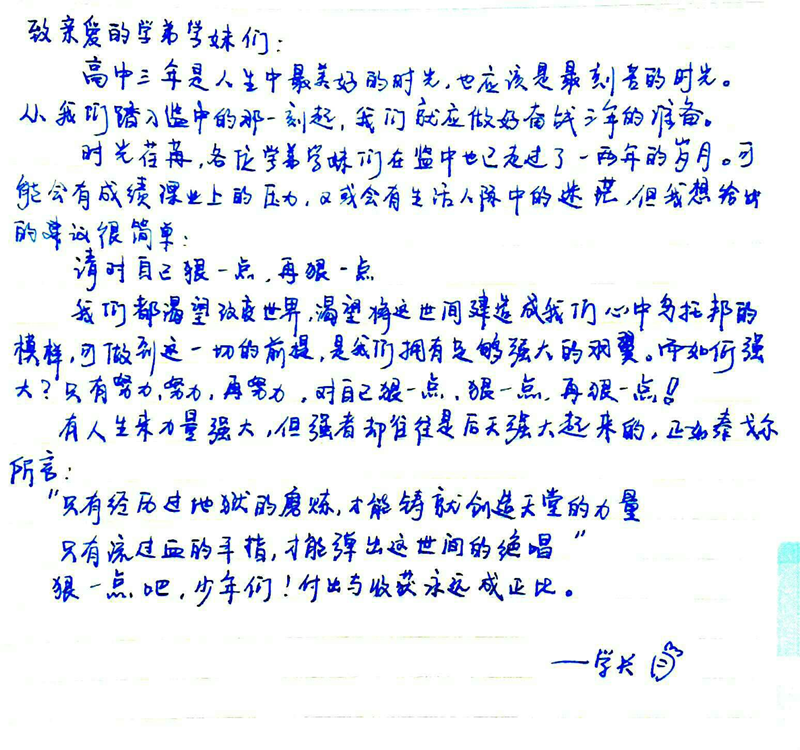 致亲爱的学弟学妹们：
高中三年是人生中最美好的时光，也应该是最刻苦的时光。
从我们踏入监中的那一刻起，我们就应做好奋战三年的准备。
时光荏苒，各位学弟学妹们在监中也已走过了一两年的岁月。可
能会有成绩课业上的压力，又或会有生活人际中的迷茫，但我想给出
的建议很简单：
请对自己狠一点，再狠一点
我们都渴望改变世界，渴望将这世间建造成我们心中乌托邦的
模样，可做到这一切的前提，是我们拥有足够强大的羽翼。而如何强
大？只有努力，努力，再努力，对自己狠一点，狠一点，再狠一点！
有人生来力量强大，但强者却往往是后天强大起来的，正如泰戈尔
所言：
“只有经历过地狱的磨炼，才能铸就创造天堂的力量
只有流过血的手指，才能弹出这世间的绝唱”
狠一点吧，少年们！付出与收获永远成正比。
——学长